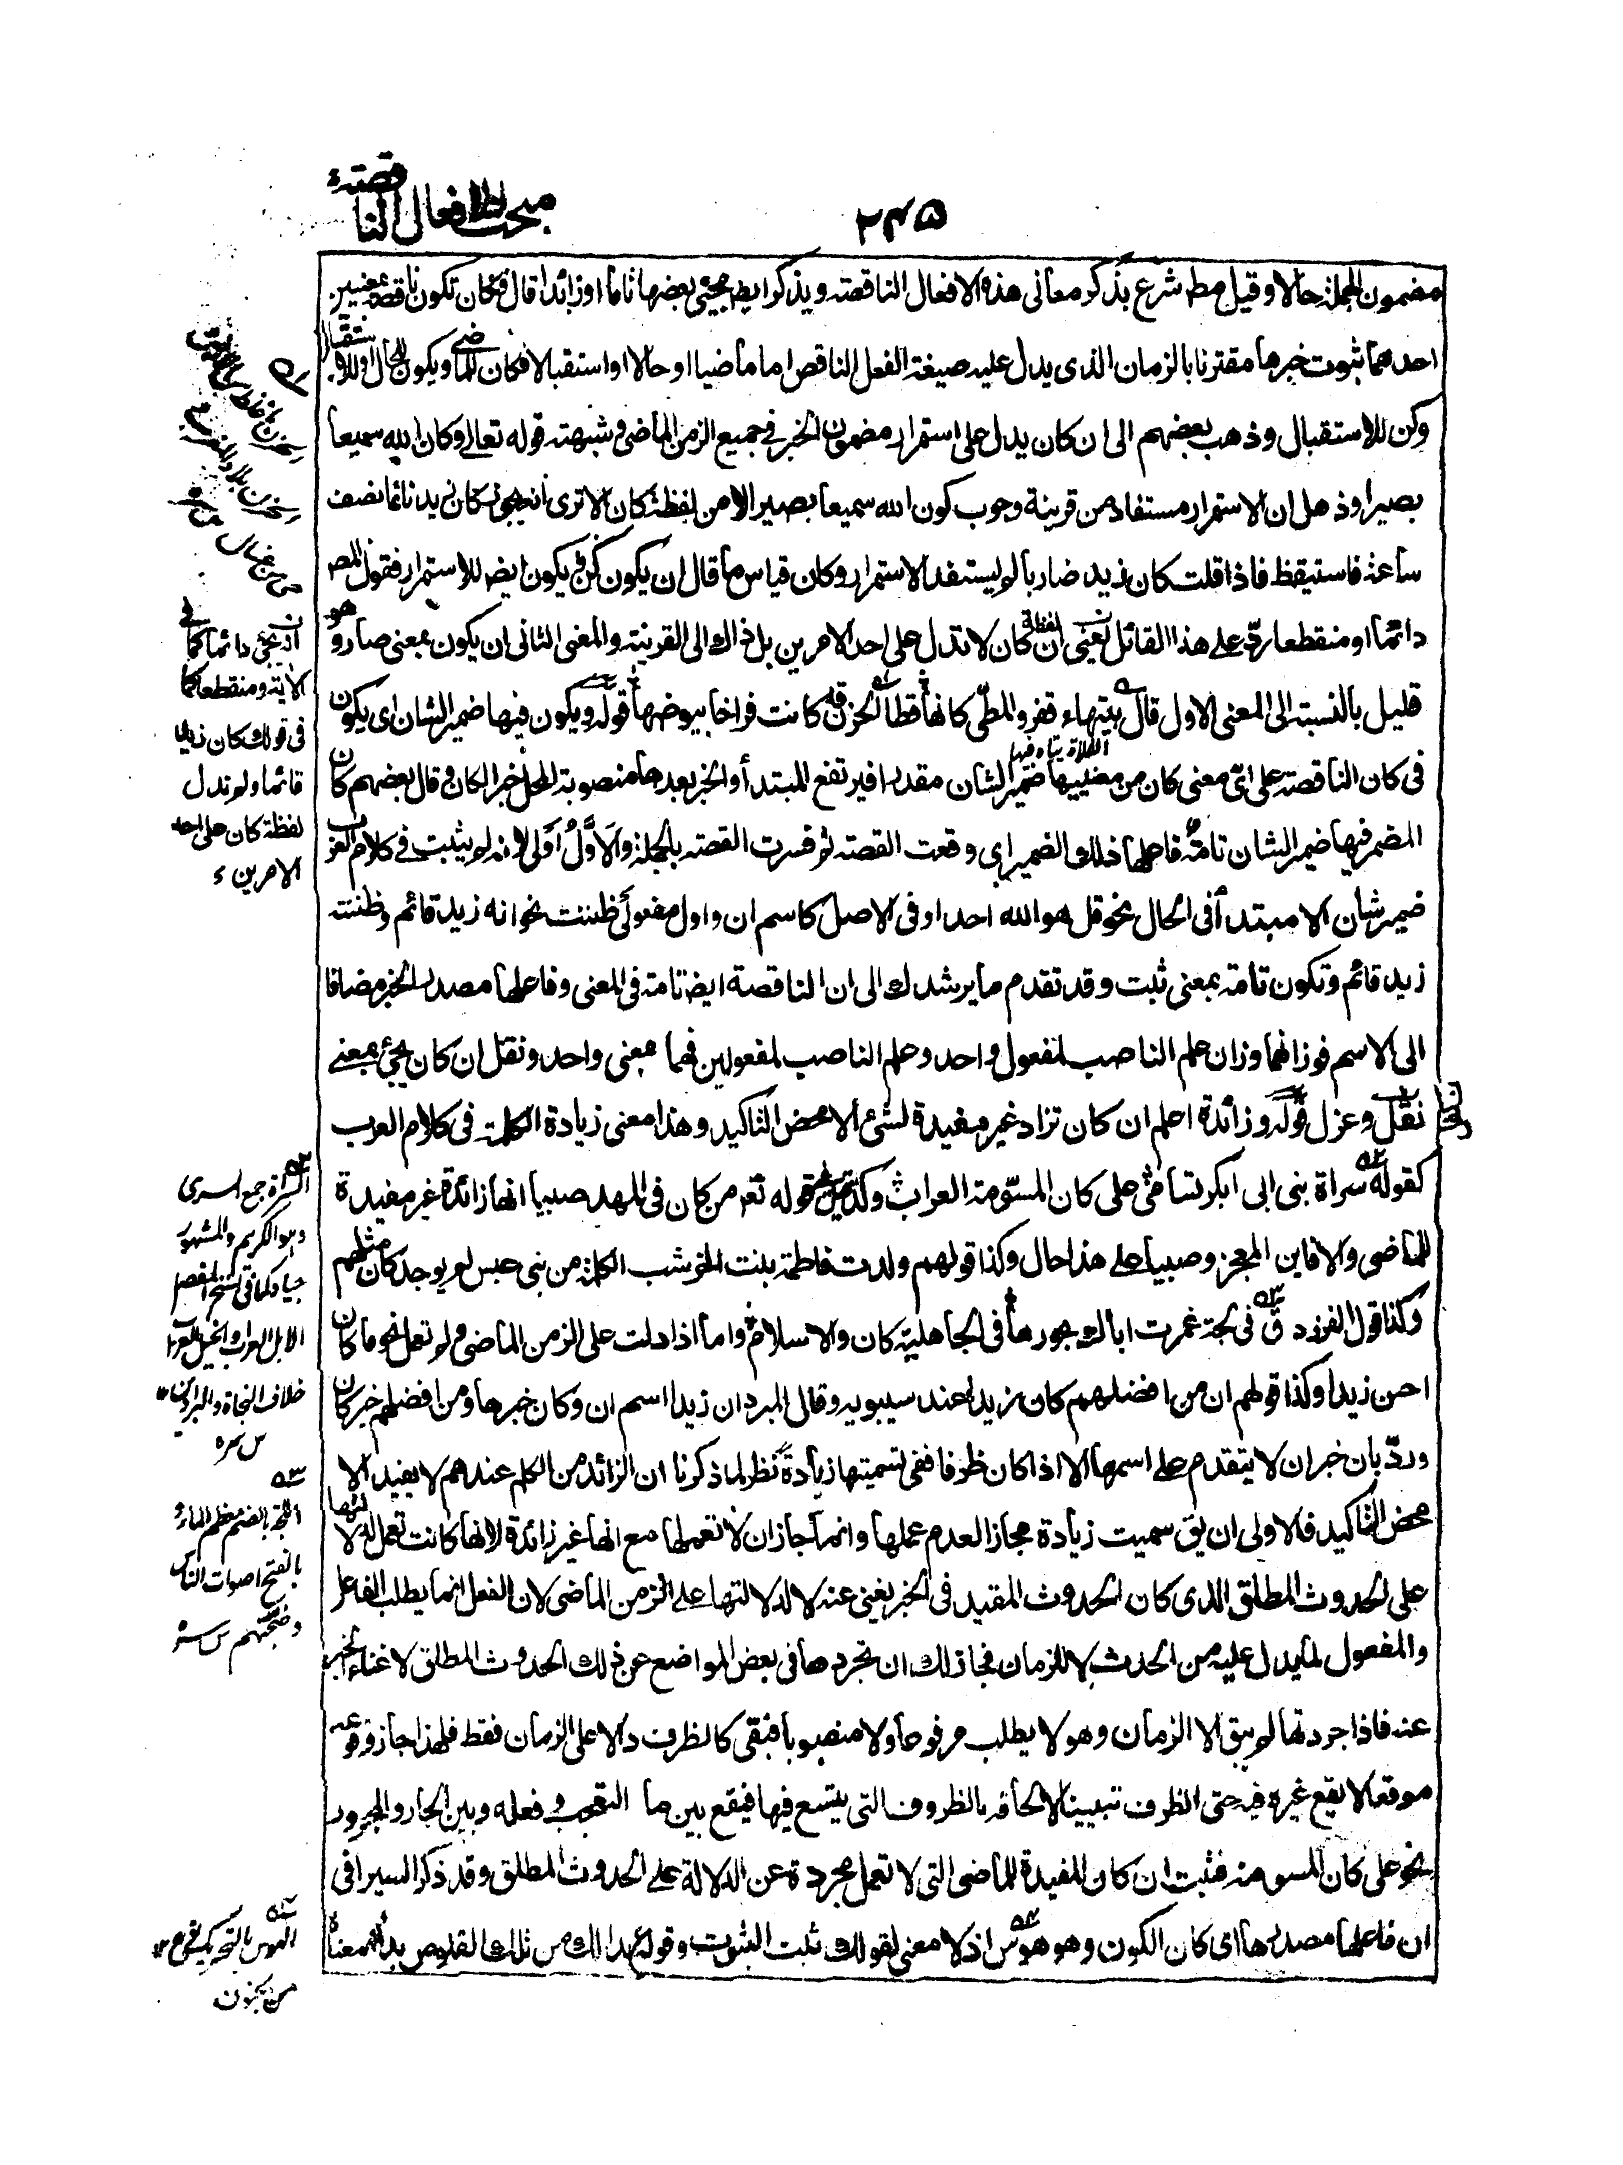 مبحث الافعال الناقصة
٢٣۵
مضمون الجملة حالا وقيل مطہ شرع يذكر معانى هذه الافعال الناقصة ويذكر ايضا مجئ بعضها تاما او زائدا قال فكان تكون ناقصة بمعنيين
احدهما ثبوت خبرها مقترنا بالزمان الذى يدل عليه صيغة الفعل الناقص اما ماضيا او حالا او استقبالا فكان للماضى ويكون للحال او للاستقبال
وكن للاستقبال وذهب بعضهم الى ان كان يدل على استمرار مضمون الخبر فى جميع الزمن الماضى وشبهته قوله تعالى وكان الله سميعا
بصيرا وذهل ان الاستمرار مستفاد من قرينة وجوب كون الله سميعا بصيرا لا من لفظة كان الا ترى انه يجوز كان زيد نائما نصف
ساعة فاستيقظ فاذا قلت كان زيد ضاربا لم يستفد الاستمرار وكان قياس ما قال ان يكون كن ويكون ايضہ للاستمرار فقول المصہ
دائما او منقطعا رد على هذا القائل يعنى ان لفظة كان لا تدل على احد الامرين بل ذاك الى القرينة والمعنى الثانى ان يكون بمعنى صار وهو
قليل بالنسبة الى المعنى الاول قال بتيهاء قفر والمطى كانها قطا الحزن قد كانت فراخا بيوضها قوله ويكون فيها ضمير الشان اى يكون
فى كان الناقصة على اى معنى كان من معنييها ضمير الشان مقدرا فيرتفع المبتدأ والخبر بعدها منصوبة المحل خبرا لكان وقال بعضهم كان
المضمر فيها ضمير الشان تامة فاعلها ذلك الضمير اى وقعت القصة ثم فسرت القصة بالجملة والاول اولى لانه لم يثبت فى كلام العرب
ضمير شان الا مبتدأ فى الحال نحو قل هو الله احد او فى الاصل كاسم ان واول مفعولى ظننت نحو انه زيد قائم وظننته
زيد قائم وتكون تامة بمعنى ثبت وقد تقدم ما يرشدك الى ان الناقصة ايضہ تامة فى المعنى وفاعلها مصدر الخبر مضافا
الى الاسم فوزانهما وزان علم الناصب لمفعول واحد وعلم الناصب لمفعولين فهما بمعنى واحد ونقل ان كان يجئ بمعنى
نقل وعزل قوله وزائدة اعلم ان كان تزاد غير مفيدة لشئ الا محض التاكيد وهذا معنى زيادة الكلمة فى كلام العرب
كقوله سراة بنى ابى بكر تسامى على كان المسومة العراب وكذا قيل فى قوله تعہ من كان فى المهد صبيا انها زائدة غير مفيدة
للماضى والا فاين المعجز وصبيا على هذا حال وكذا قولهم ولدت فاطمة بنت الخرشب الكملة من بنى عبس لم يوجد كان مثلهم
وكذا قول الفرزدق فى لجة غمرت اباك بحورها فى الجاهلية كان والاسلام واما اذا دلت على الزمن الماضى ولم تعمل نحو ما كان
احسن زيدا وكذا قولهم ان من افضلهم كان زيدا عند سيبويه وقال المبرد ان زيدا اسم ان وكان خبرها ومن افضلهم خبر كان
ورد بان خبر ان لا يتقدم على اسمها الا اذا كان ظرفا ففى تسميتها زيادة نظر لما ذكرنا ان الزائد من الكلم عندهم لا يفيد الا
محض التاكيد فالاولى ان يق سميت زيادة مجازا لعدم عملها وانما جاز ان لا تعملها مع انها غير زائدة لانها كانت تعمل لدلالتها
على الحدوث المطلق الذى كان الحدوث المقيد فى الخبر يغنى عنه لا لدلالتها على الزمن الماضى لان الفعل انما يطلب الفاعل
والمفعول لما يدل عليه من الحدث لا للزمان فجاز لك ان تجردها فى بعض المواضع عن ذلك الحدوث المطلق لاغناء الخبر
عنه فاذا جردتها لم يبق الا الزمان وهو لا يطلب مرفوعا ولا منصوبا فبقى كالظرف دالا على الزمان فقط فلهذا جاز وقوعه
موقعا لا يقع غيره فيه حتى الظرف تبيينا لالحاقه بالظروف التى يتسع فيها فيقع بين ما التعجب وفعله وبين الجار والمجرور
نحو على كان المسومة فثبت ان كان المفيدة للماضى التى لا تعمل مجردة عن الدلالة على الحدوث المطلق وقد ذكر السيرافى
ان فاعلها مصدرها اى كان الكون وهو هوس اذ لا معنى لقولك ثبت الثبوت وقوله ع بدا لك من تلك القلوص بداء معناه
اذ يجئ دائما كما فى
الآية ومنقطعا كما
فى قولك كان زيد
قائما ولم تدل
لفظة كان على احد
الامرين
السراة جمع السرى
وهو الكريم والمشهور
جياد كما فى نسخ المفصل
الابل العراب والخيل العراب
خلاف البخاتى والبراذين
اللجة بالضم معظم الماء و
بالفتح اصوات الناس
وضجتهم
الهوس بالتحريك نوع
من الجنون